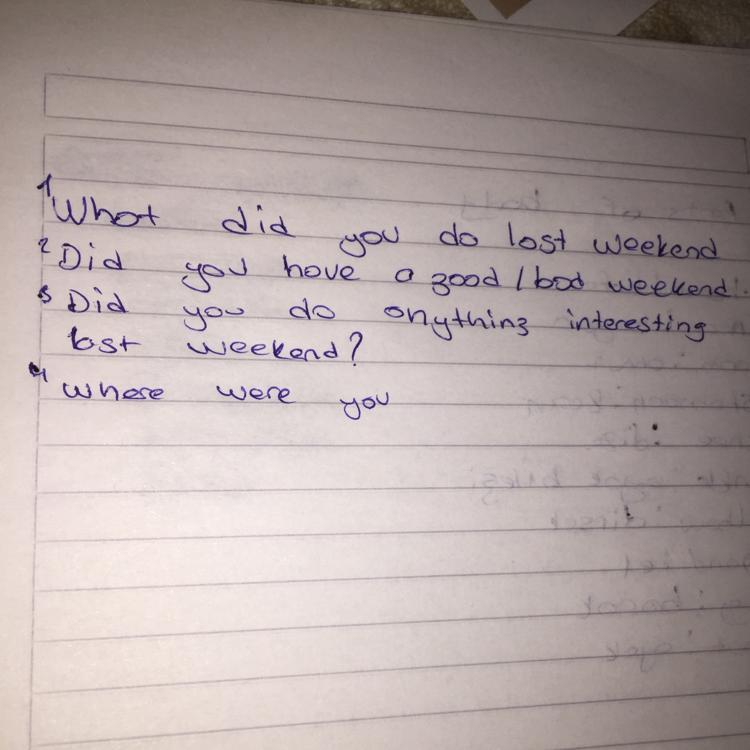 1 What did you do last weekend
2 Did you have a good / bad weekend.
3 Did you do anything interesting
last weekend?
4 where were you